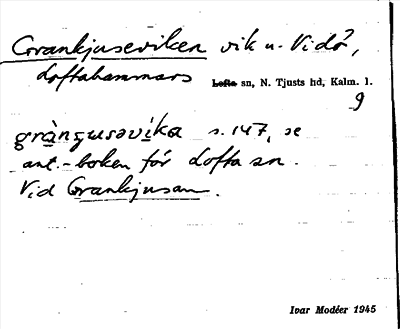 Grankjuseviken vik u. Vidö,
Loftahammars Lofta sn, N. Tjusts hd, Kalm. l.
9
gràŋçusəvika s. 147, se
ant.-boken för Lofta sn.
Vid Grankjusan.
Ivar Modéer 1945